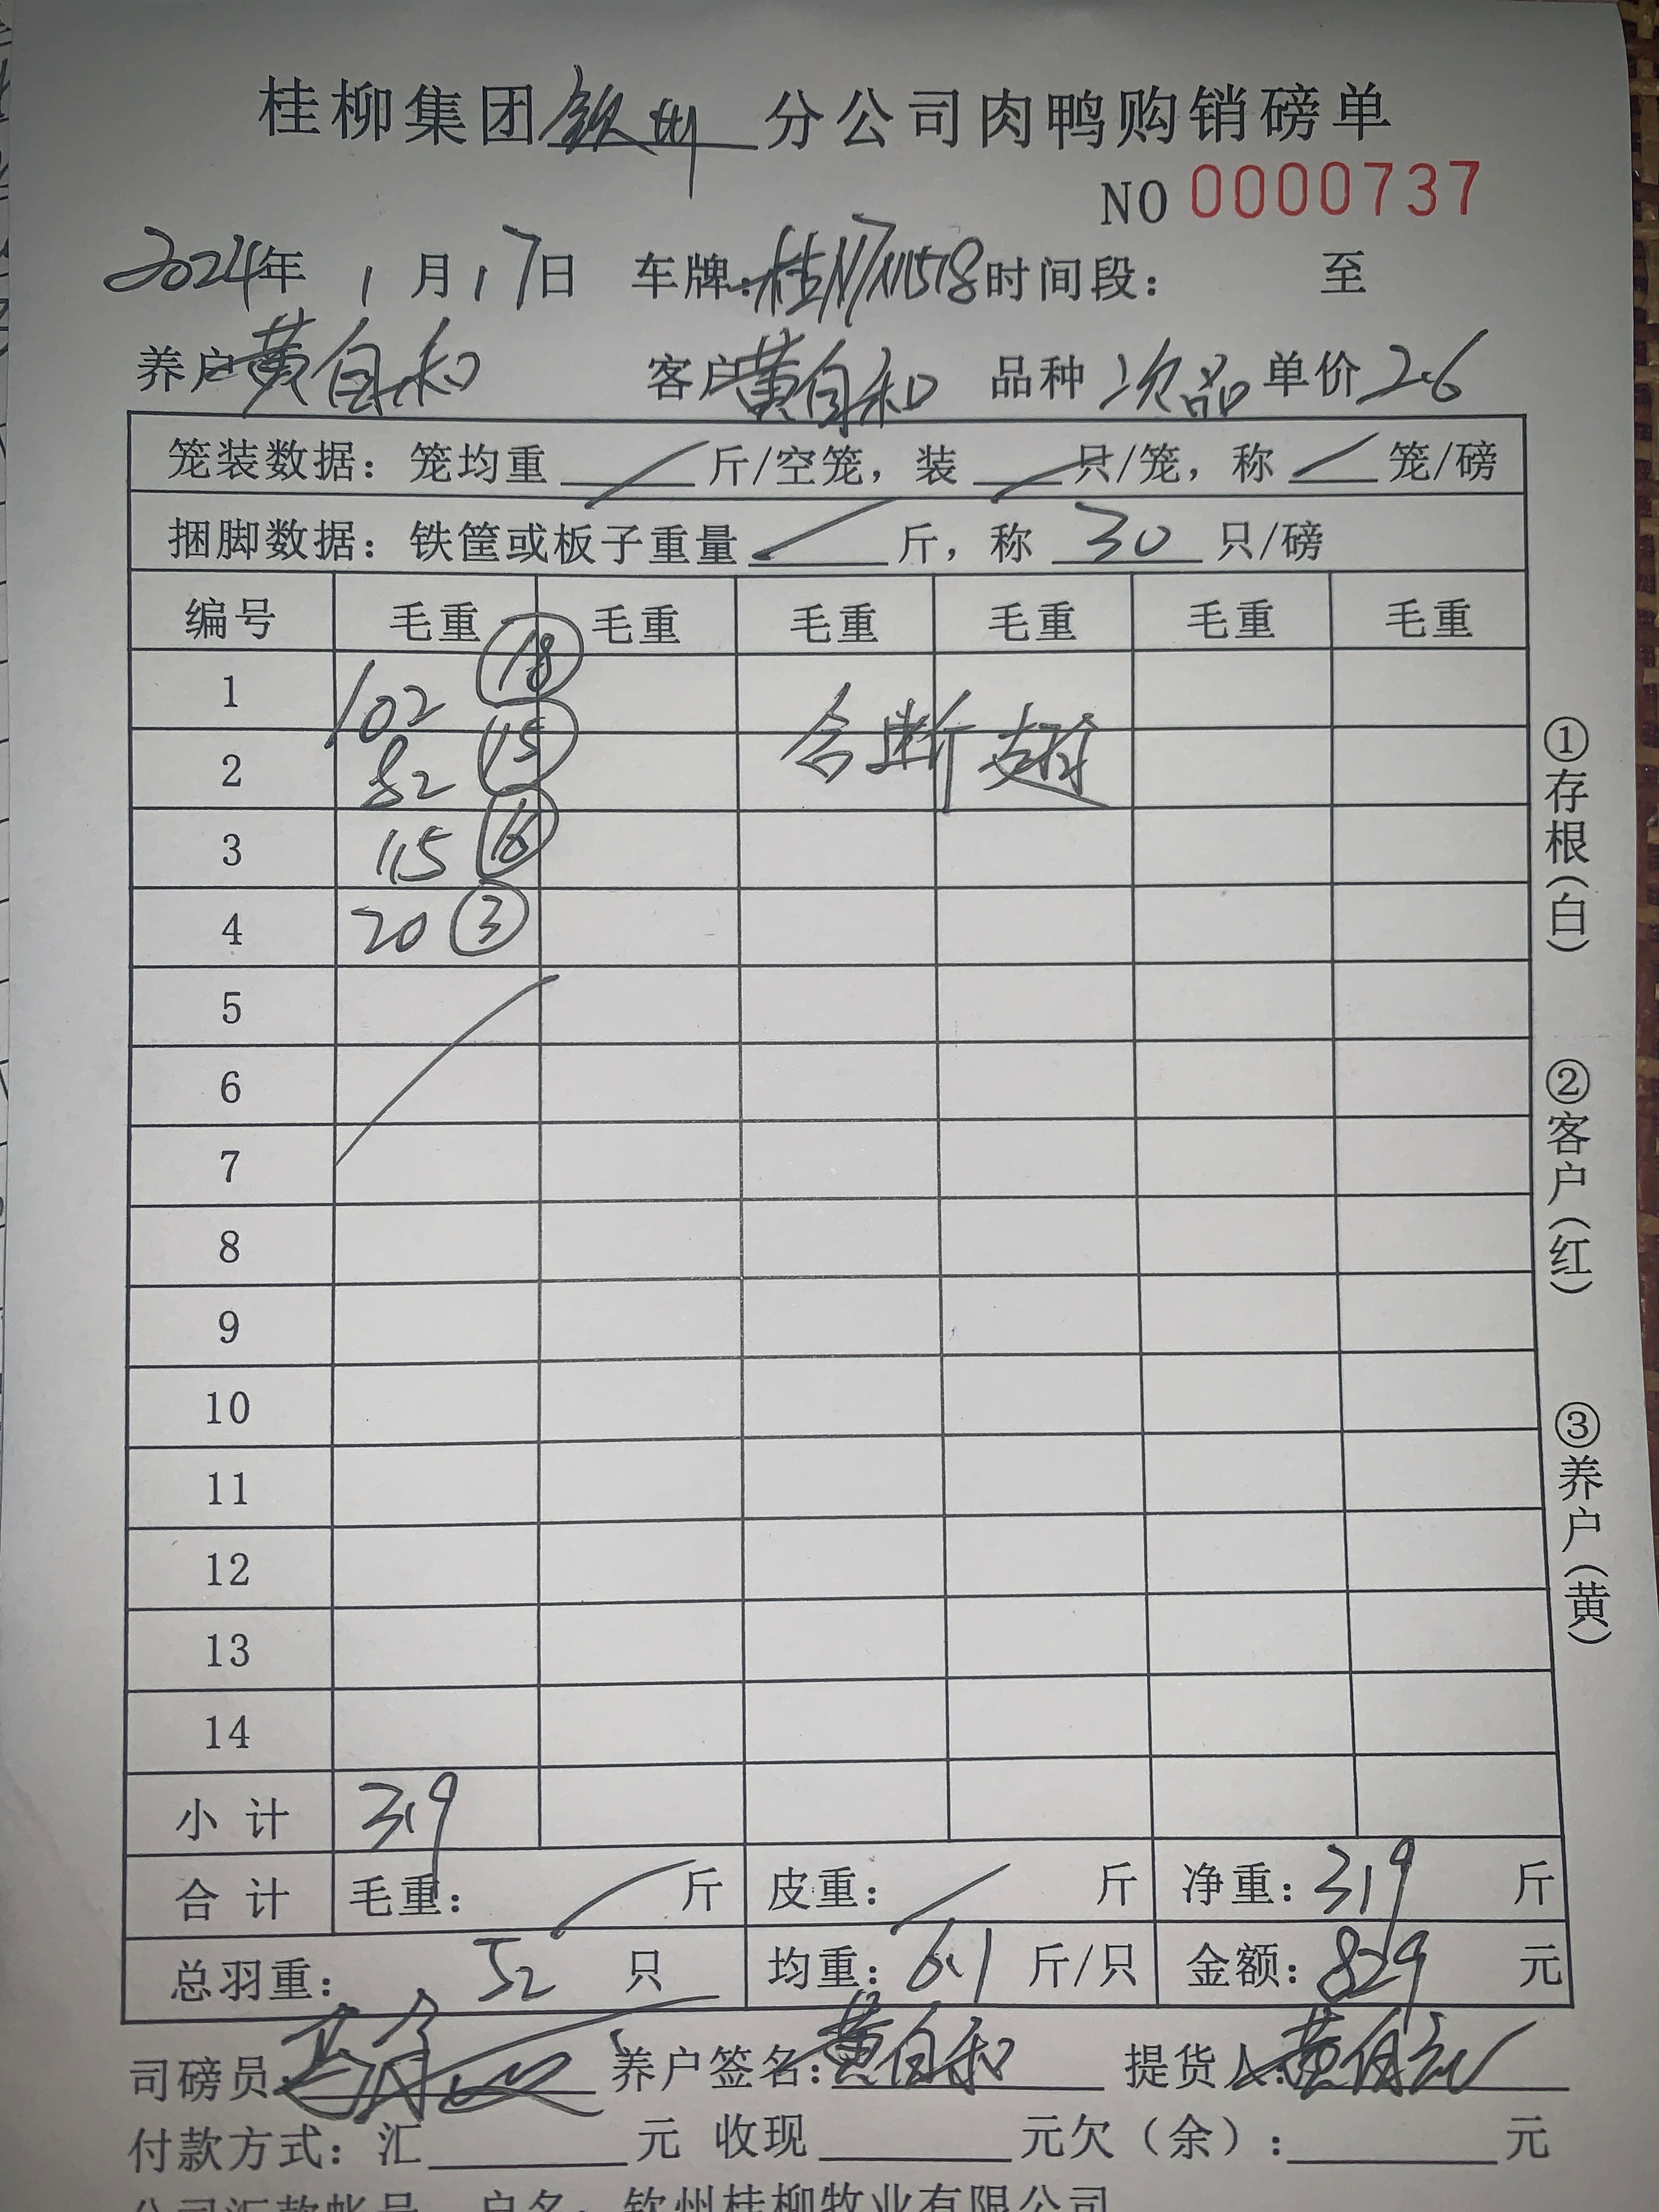 桂柳集团钦州分公司肉鸭购销磅单
NO 0000737
2024年 1月17日 车牌: 时间段: 至
养户黄自和 客户黄自和 品种 次品 单价2.6
笼装数据: 笼均重 斤/空笼, 装 只/笼, 称 笼/磅
捆脚数据: 铁筐或板子重量 斤, 称 30 只/磅
编号 毛重 毛重 毛重 毛重 毛重 毛重
1 102 18
2 82 15 含断翅
3 115 16
4 20 3
5
6
7
8
9
10
11
12
13
14
小计 319
合计 毛重: 斤 皮重: 斤 净重: 319 斤
总羽重: 52 只 均重: 6.1 斤/只 金额: 829 元
司磅员 养户签名: 黄自和 提货人: 黄自和
付款方式: 汇 元 收现 元欠(余): 元
公司汇款帐号 户名: 钦州桂柳牧业有限公司
①存根(白)
②客户(红)
③养户(黄)